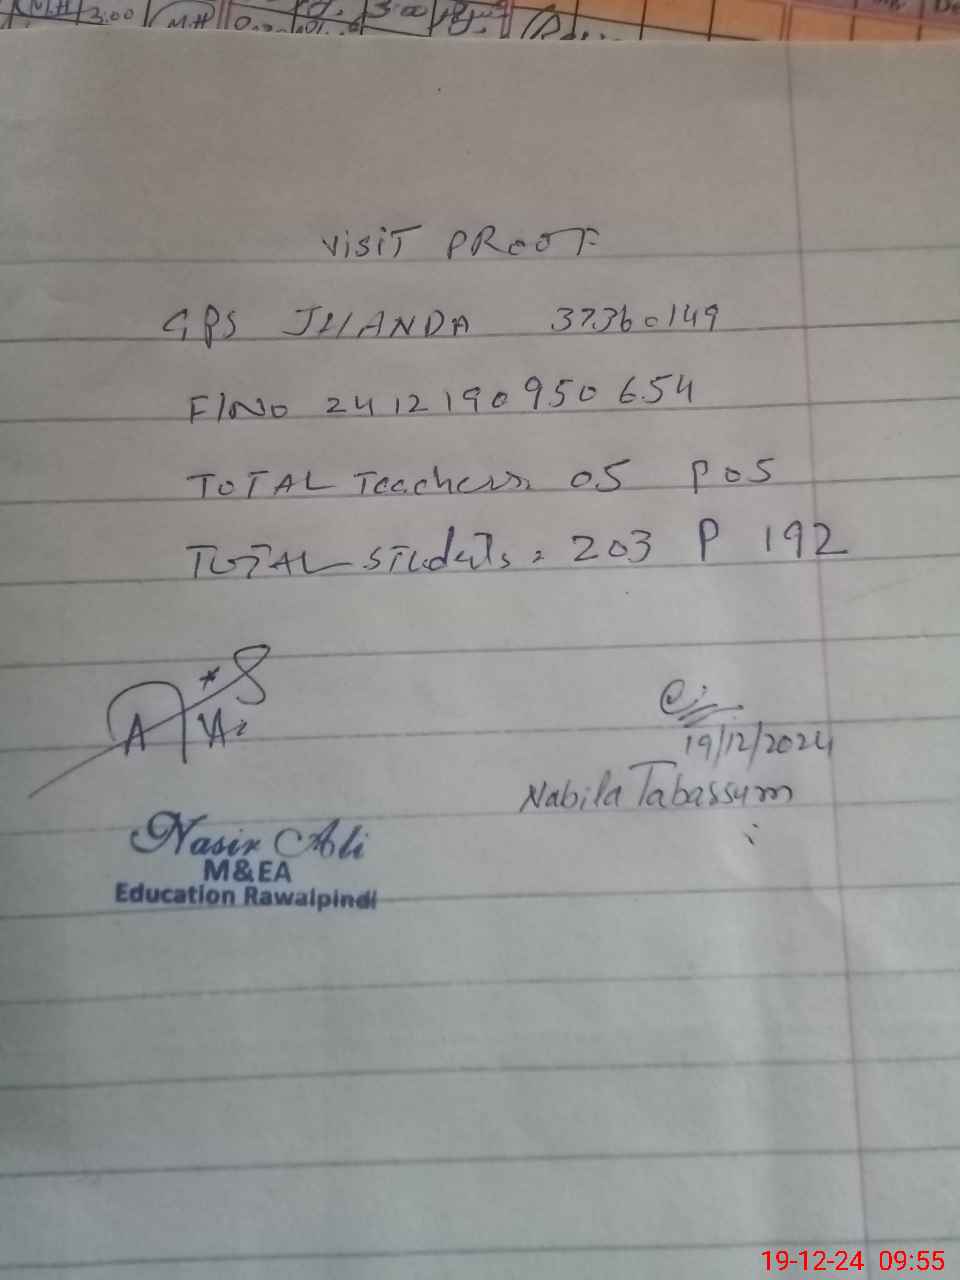 M.H 3:00 M.H
3:00
VISIT PROOF
GPS JHANDA 37360149
F/NO 2412190950654
TOTAL Teachers 05 P 05
TOTAL Students = 203 P 192
19/12/2024
Nabila Tabassum
Nasir Ali
M&EA
Education Rawalpindi
19-12-24 09:55